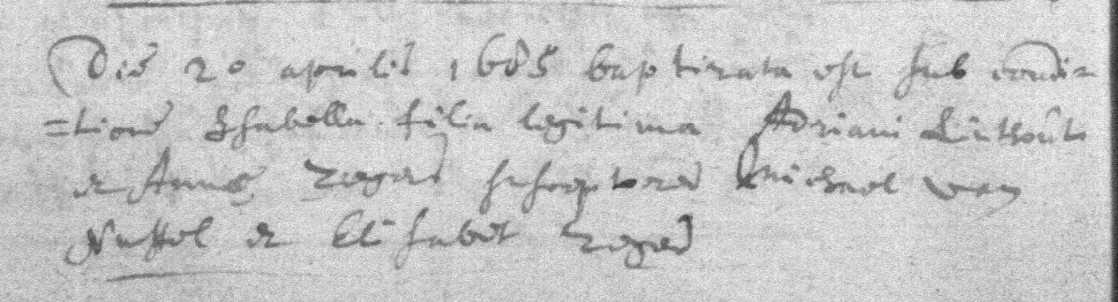 Die 20 aprilis 1685 baptizata est sub condi-
=tione Isabella filia legitima Adriani Linthouts
et Annae Zegers susceptores Michael van
Nussel et Elisabet Zegers